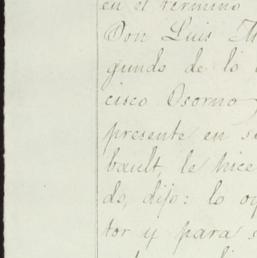 en el término
Don Luis Th
gundo de lo
cisco Osorno
presente en s
bault, le hice
do, dijo: lo oy
tor y para s